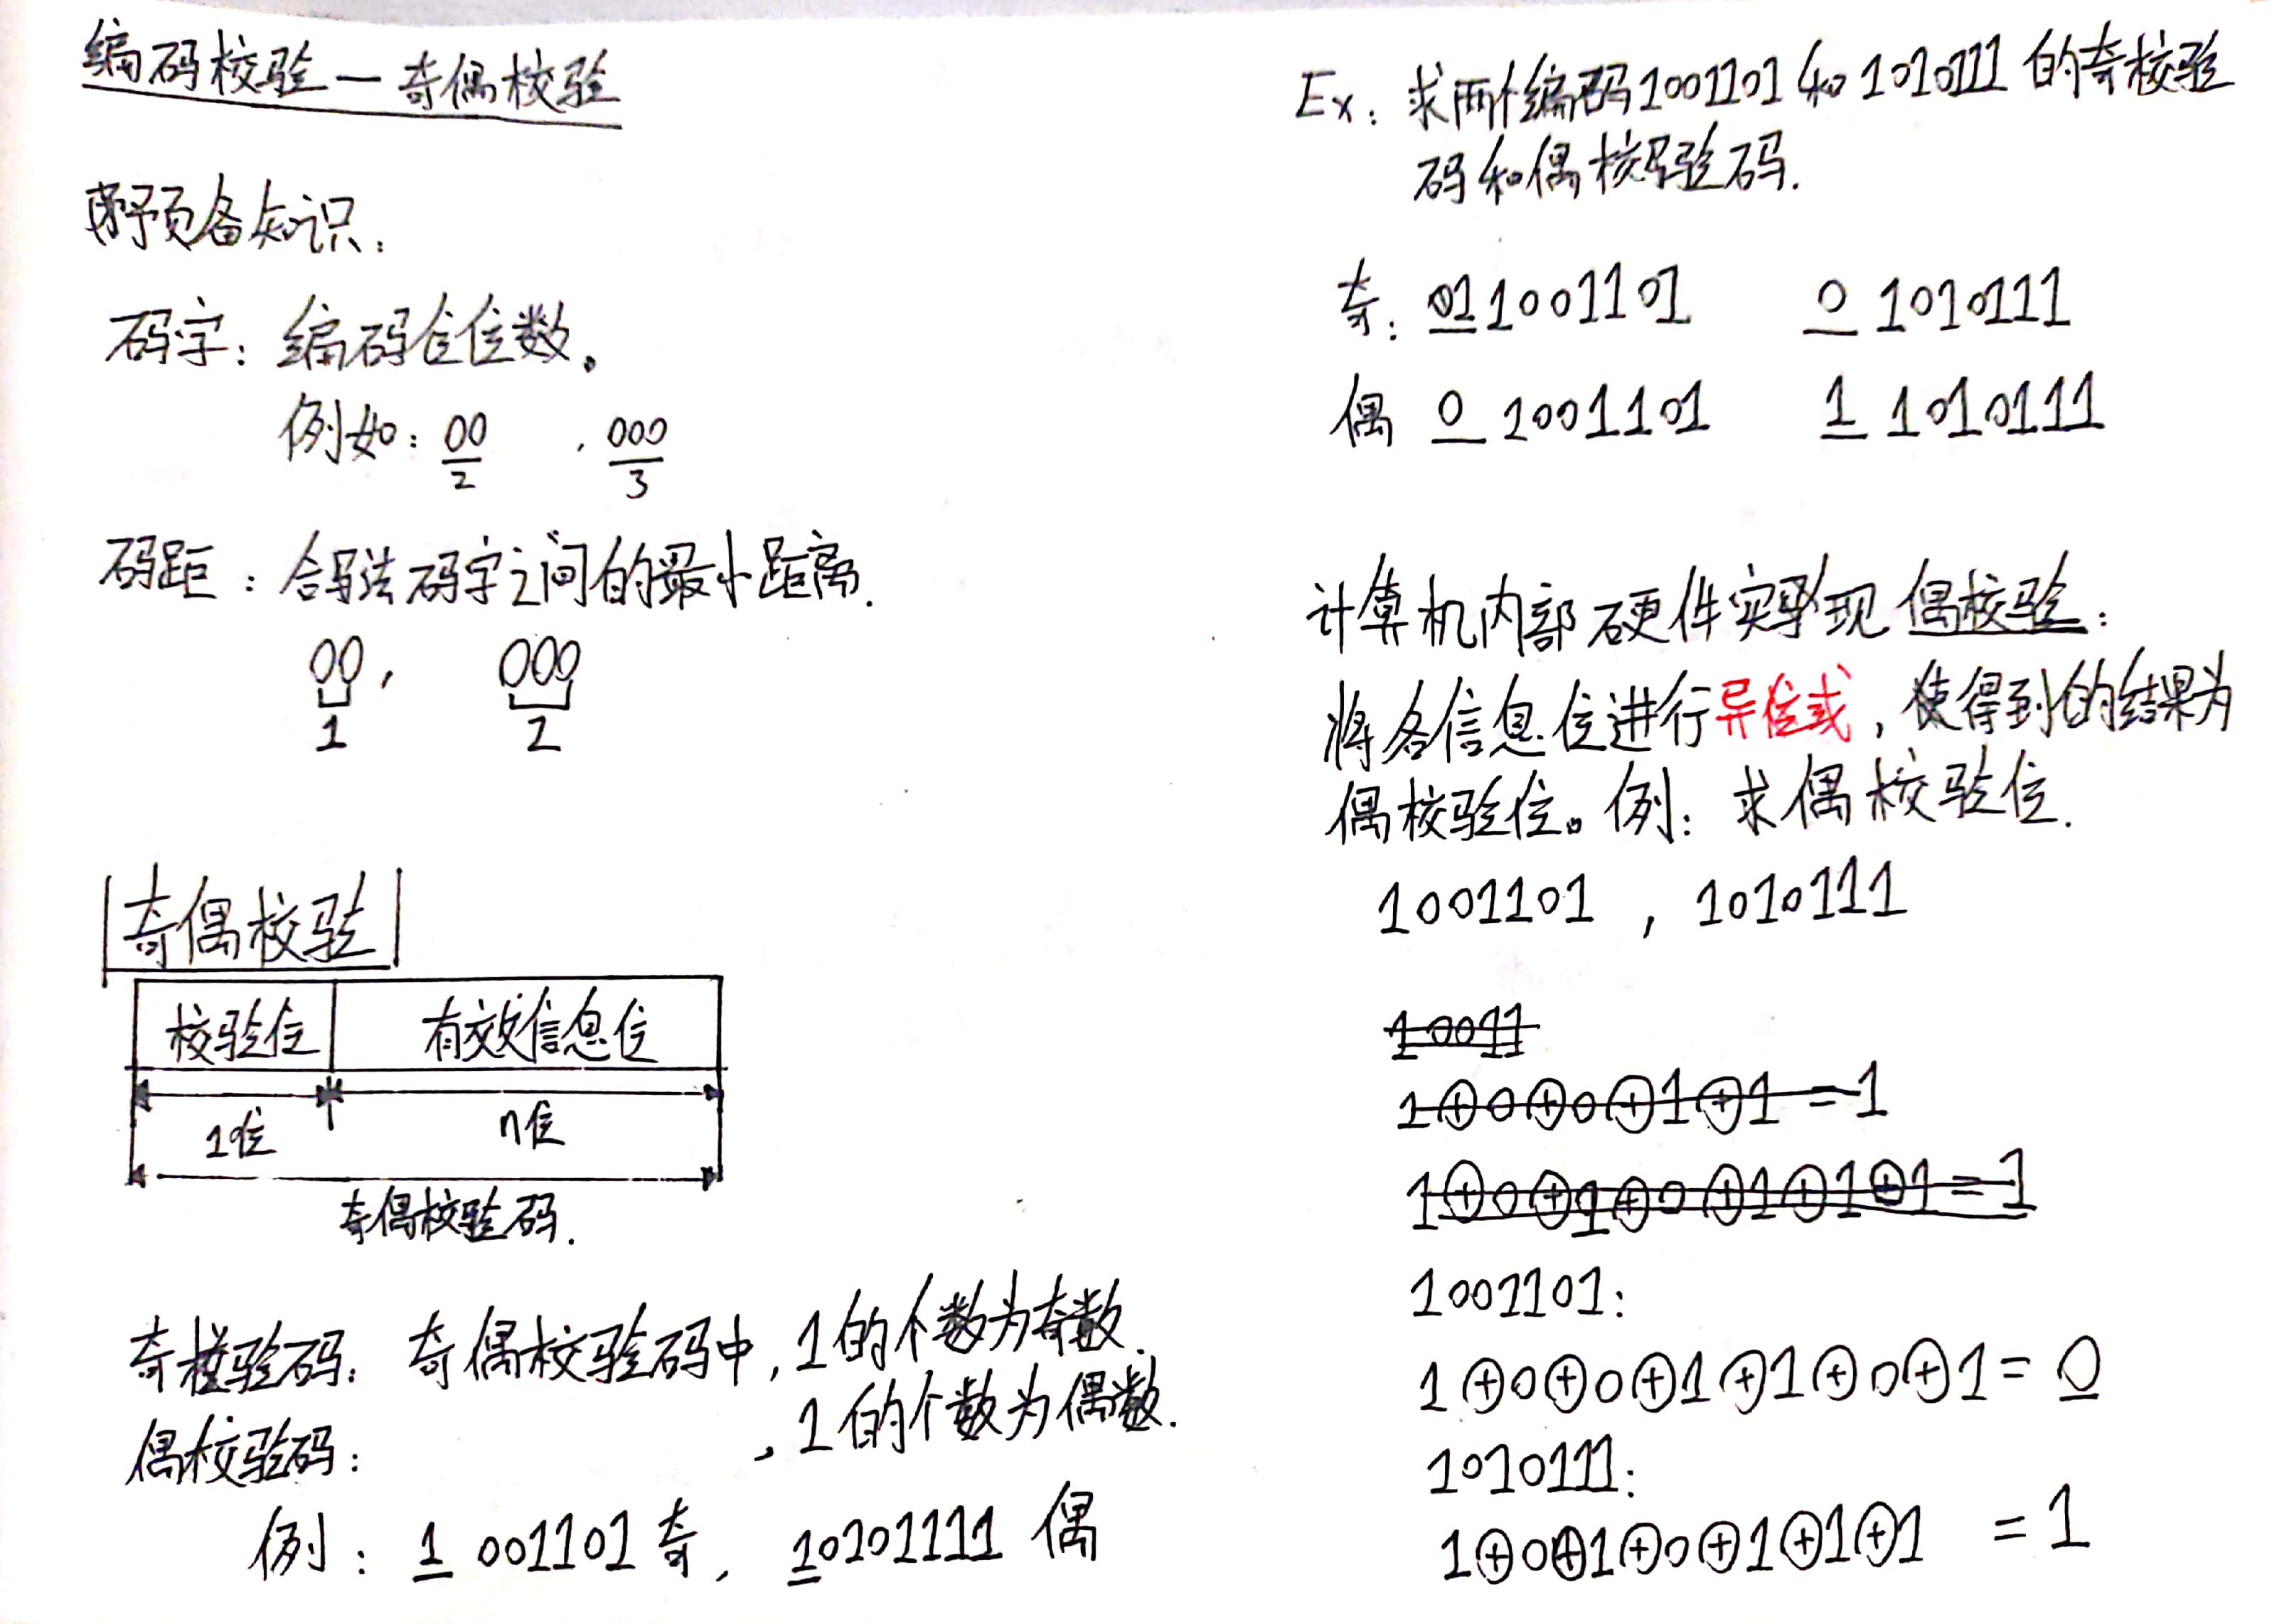 编码校验—奇偶校验
预备知识：
码字：编码位数。
例如：00 , 000
2 3
码距：合法码字之间的最小距离.
00, 000
1 2
奇偶校验
校验位 有效信息位
1位 n位
奇偶校验码.
奇校验码：奇偶校验码中, 1的个数为奇数.
偶校验码： , 1的个数为偶数.
例：1 001101 奇, 10101111 偶
Ex：求两个编码1001101和1010111的奇校验
码和偶校验码.
奇：1 1001101 0 1010111
偶 0 1001101 1 1010111
计算机内部硬件实现偶校验：
将各信息位进行异或, 使得到的结果为
偶校验位。例：求偶校验位.
1001101 , 1010111
10011
1⊕0⊕0⊕1⊕1=1
1⊕0⊕1⊕0⊕1⊕1⊕1=1
1001101:
1⊕0⊕0⊕1⊕1⊕0⊕1=0
1010111:
1⊕0⊕1⊕0⊕1⊕1⊕1 =1